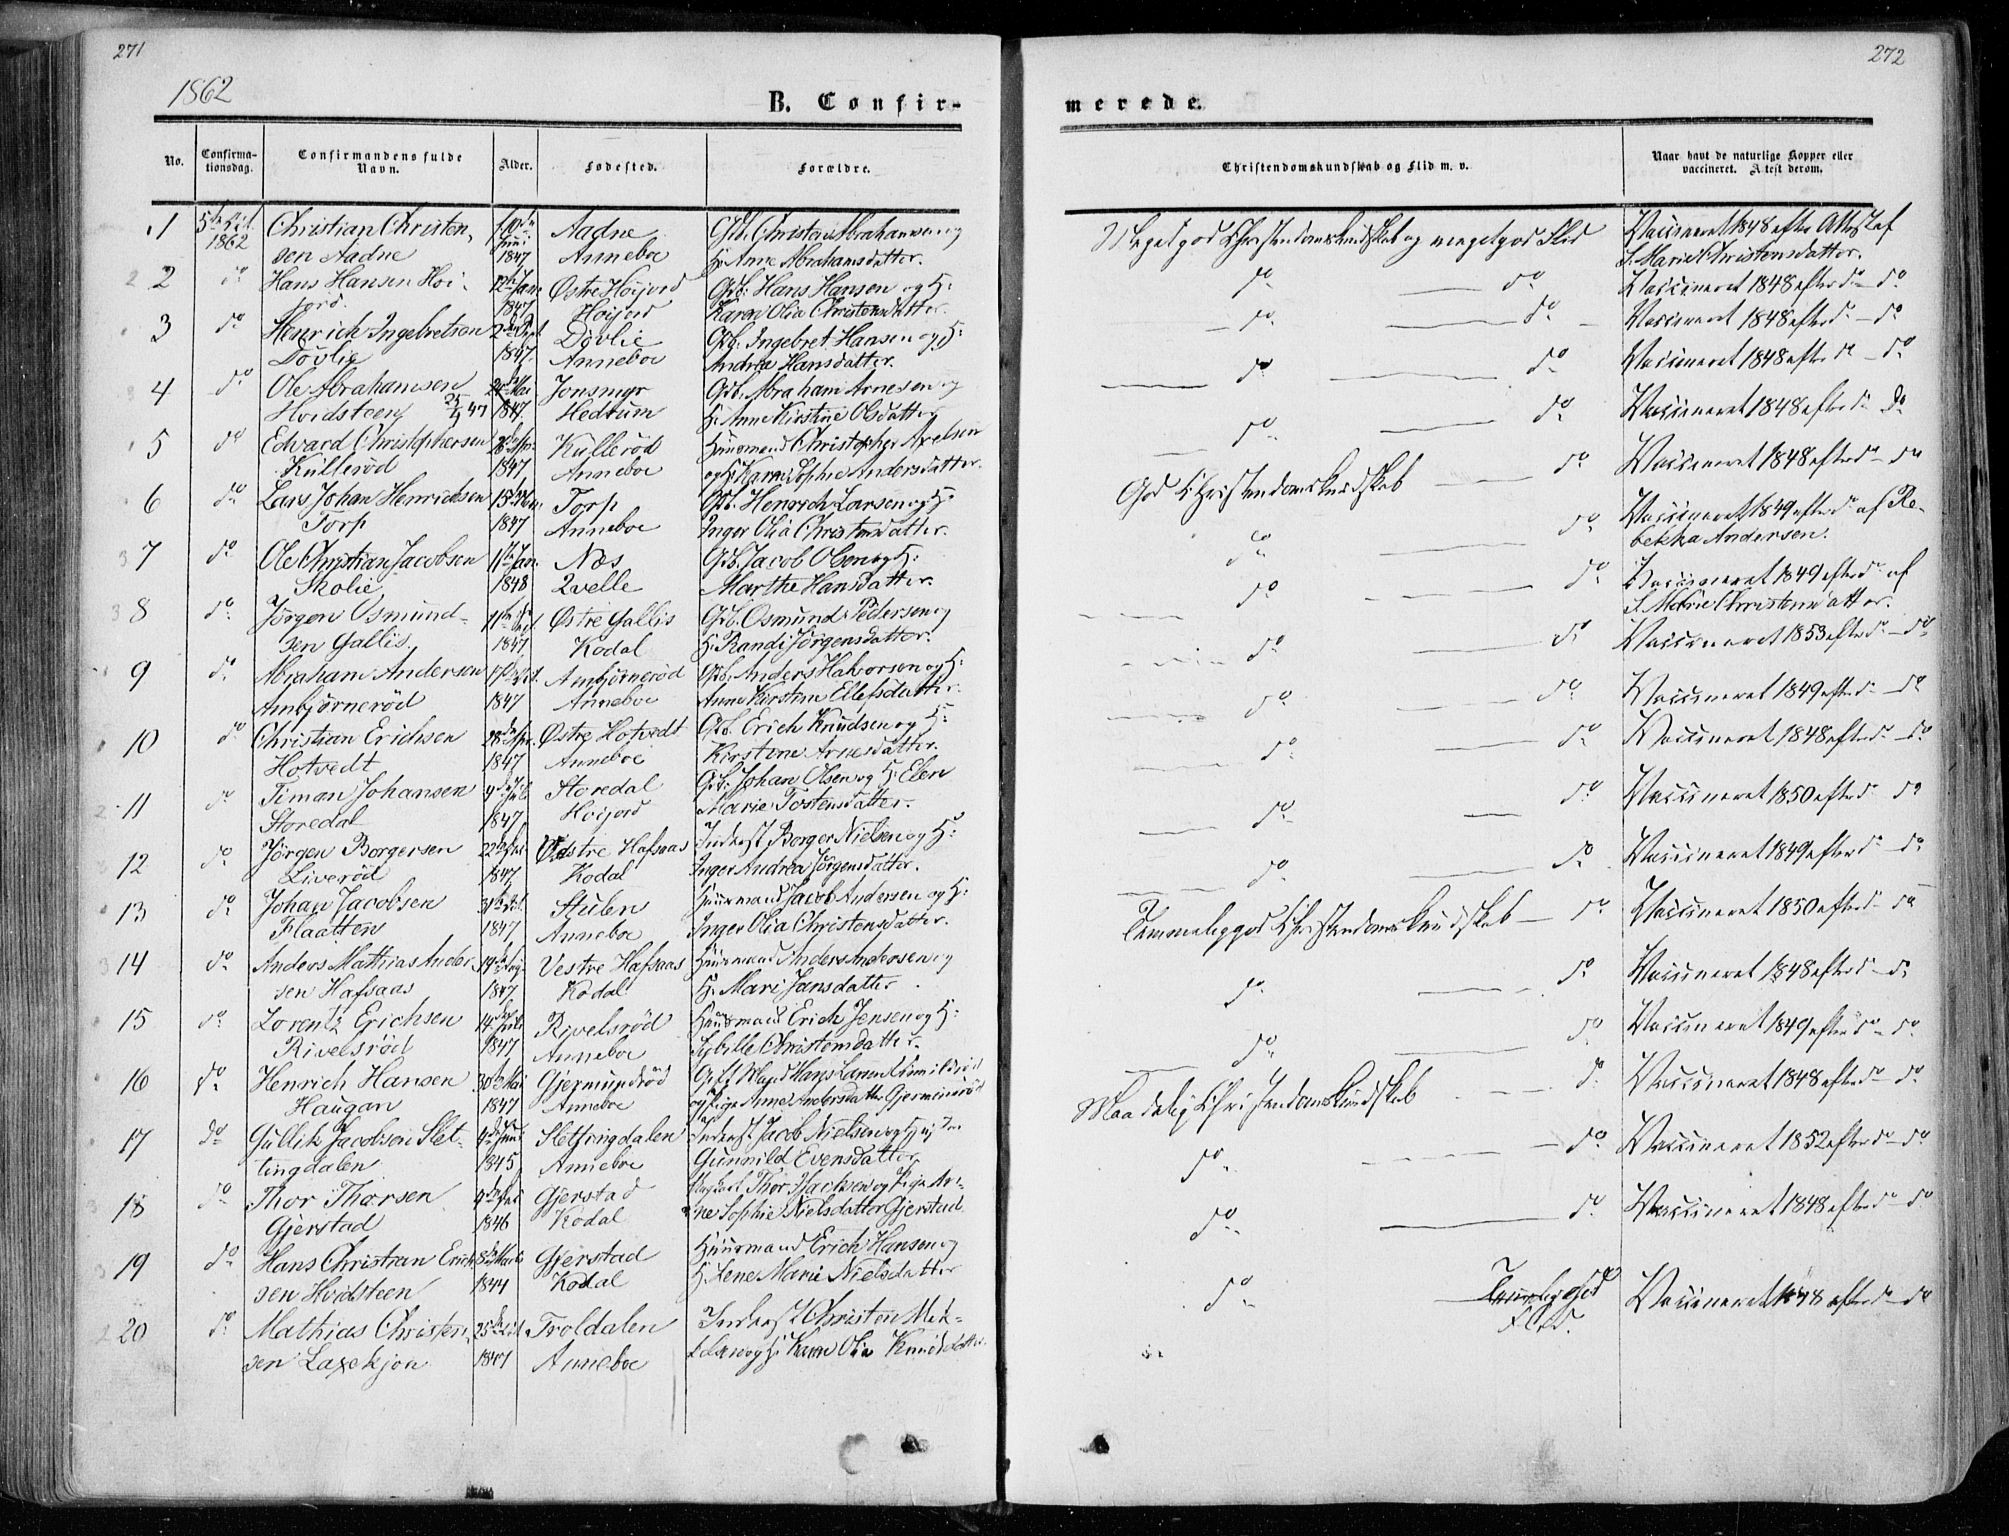 271
272
1862
B. Confir-
merede.
No.
Confirma-
tionsdag.
Confirmandens fulde
Navn.
Alder.
Fødested.
Forældre.
Christendomskundskab og Flid m. v.
Naar havt de naturlige Kopper eller
vaccineret. Attest derom.
1 5te Oct. Christian Christen- 10de Juni Aadne Gdb. Christen Abrahamsen og Meget god Christendomskundskab og meget god Flid Vaccineret 1848 efter Attest af
1862 sen Aadne 1847 Anneboe H: Anne Abrahamsdatter. S. Marie Christensdatter.
2 do Hans Hansen Høi- 12te Jan. Østre Høijord Gdb: Hans Hansen og H: do do Vaccineret 1848 efter do - do
jord. 1847 Høijord Karen Olia Christensdatter.
3 do Henrich Ingebretsen Døvlie Gdb: Ingebret Hansen og H: do do Vaccineret 1848 efter do - do
Døvlie 1847. Anneboe Andrea Hansdatter.
4 do Ole Abrahamsen Mai Jonsmyr Gdb. Abraham Arnesen og do do Vaccineret 1848 efter do - do
Hvidsteen 1847. Hedrum H: Anne Kirstine Olsdatter
5 do Edvard Christophersen Apr. Kullerød Huusmand Christopher Axelsen do do Vaccineret 1848 efter do do
Kullerød 1847 Anneboe og H: Karen Sophie Andersdatter.
6 do Lars Johan Henrichsen 15de Torp Gdb. Henrich Larsen og H: God Christendomskundskab do Vaccineret 1848 efter do - do
Torp 1847 Anneboe Inger Olia Christensdatter.
7 do Ole Christian Jacobsen 11te Jan. Næs Gdb. Jacob Olsen og H: do do Vaccineret 1849 efter do af Re-
Skolie 1848 Qvelle Marthe Hansdatter. bekka Andersen.
8 do Jørgen Osmund- 11te Østre Gallis Gdb. Osmund Pedersen og do do Vaccineret 1849 efter do af
sen Gallis. 1847 Kodal H: Randi Jørgensdatter. S. Marie Christensdatter.
9 do Abraham Andersen 17de Oct. Ambjørnerød Gdb. Anders Halvorsen og H: do do Vaccineret 1853 efter do - do
Ambjørnerød 1847 Anneboe Anne Kirstine Ellefsdatter.
10 do Christian Erichsen 28de Apr. Østre Hotvedt Gdb. Erich Knudsen og H: do do Vaccineret 1849 efter do - do
Hotvedt 1847 Anneboe Kirstine Arnesdatter.
11 do Timan Johansen Juli Storedal Gdb: Johan Olsen og H: Elen do do Vaccineret 1848 efter do - do
Storedal 1847 Høijord Marie Tostensdatter.
12 do Jørgen Borgersen 22de Vestre Hafsaas Inderst Borger Nielsen og H: do do Vaccineret 1850 efter do do
Liverød 1847 Kodal Inger Andrea Jørgensdatter.
13 do Johan Jacobsen 31te Stulen Huusmand Jacob Andersen og H: do do Vaccineret 1849 efter do - do
Flaatten 1847 Anneboe Inger Olia Christensdatter.
14 do Anders Mathias Ander- 19de Aug. Vestre Hafsaas Huusmand Anders Andersen og Temmelig god Christendomskundskab - do Vaccineret 1850 efter do - do
sen Hafsaas 1847 Kodal H. Mari Jansdatter.
15 do Lorentz Erichsen 14de Juli Rivelsrød Huusmand Erich Jensen og H: do do Vaccineret 1848 efter do - do
Rivelsrød 1847 Anneboe Sybille Christensdatter.
16 do Henrich Hansen 30te Mai Gjermundrød Gift Mand Hans Larsen do do Vaccineret 1849 efter do - do
Haugan 1847 Anneboe og Pige Anne Andersdatter Gjermundrød
17 do Gullik Jacobsen Slet- Juni Slettingdalen Inderst Jacob Nielsen og H: Maadelig Christendomskundskab do Vaccineret 1848 efter do - do
tingdalen 1845 Anneboe Gunnild Evensdatter
18 do Thor Thorsen Gjerstad Ungkarl Thor og Pige An- do do Vaccineret 1852 efter do - do
Gjerstad 1846 Kodal ne Sophie Nielsdatter Gjerstad
19 do Hans Christian Erich- 8de Marts Gjerstad Huusmand Erich Hansen og do do Vaccineret 1848 efter do - do
sen Hvidsteen 1844 Kodal H: Lene Marie Nielsdatter
20 do Mathias Christen- 25de Oct. Troldalen Inderst Christen do Temmelig god Vaccineret 1848 efter do - do
sen Laxekjøn 1847 Anneboe og H: Karen Olia Knudsdatter. Flid.